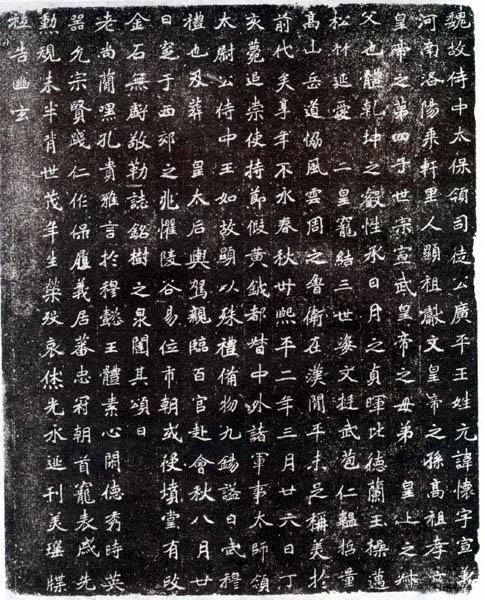 魏故侍中太保領司徒公廣平王姓元諱懷字宣義
河南洛陽乘軒里人顯祖獻文皇帝之孫高祖孝文
皇帝之第四子世宗宣武皇帝之母弟 皇上之叔
父也體乾坤之叡性承日月之貞暉比德蘭玉操邁
松竹延愛 二皇寵結三世姿文挺武苞仁韞哲量
高山岳道協風雲周之魯衛在漢間平未足稱美於
前代矣享年不永春秋卅熙平二年三月廿六日丁
亥薨追崇使持節假黃鉞都督中外諸軍事太師領
太尉公侍中王如故顯以殊禮備物九錫謚曰武穆
禮也及葬 皇太后輿駕親臨百官赴會秋八月廿
日窆于西郊之兆懼陵谷易位市朝或侵墳堂有改
金石無虧敬勒誌銘樹之泉闥其頌曰
老尚簡嘿孔貴雅言於穆懿王體素心閑德秀時英
器允宗賢踐仁作保履義居蕃忠冠朝首寵表戚先
勳規未半背世茂年生榮歿哀休光永延刊美瑤牒
祗告幽玄